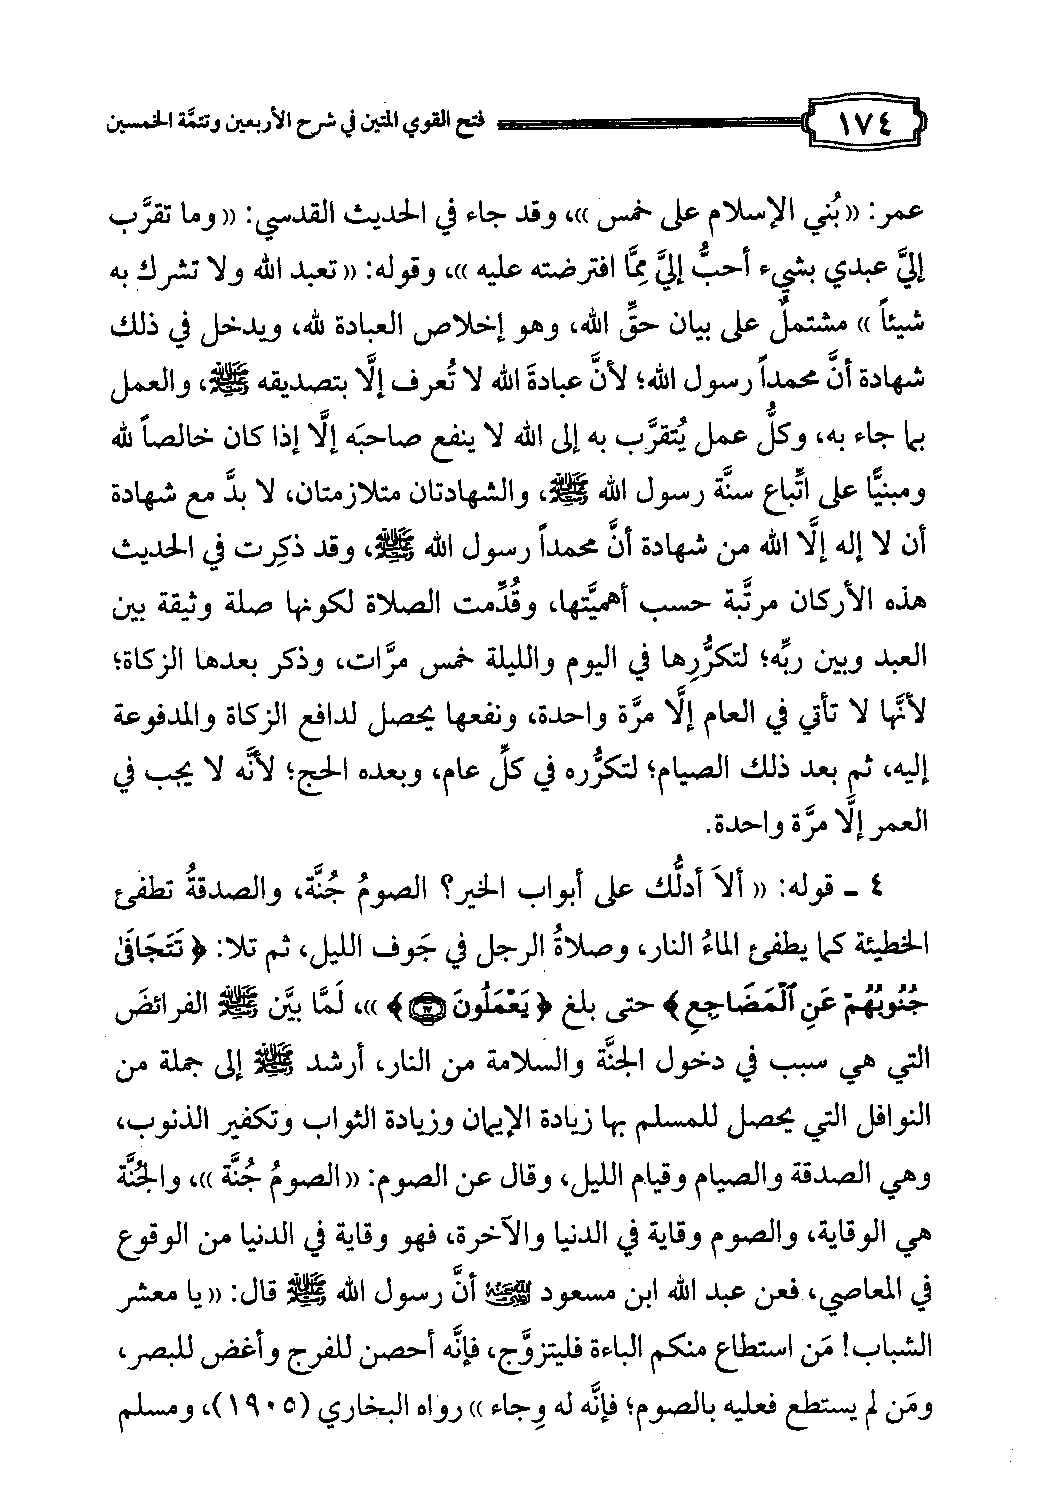 ١٧٤ فتح القوي المتين في شرح الأربعين وتتمَّة الخمسين
عمر: «بُني الإسلام على خمس»، وقد جاء في الحديث القدسي: «وما تقرَّب
إليَّ عبدي بشيء أحبُّ إليَّ ممَّا افترضته عليه»، وقوله: «تعبد الله ولا تشرك به
شيئاً» مشتملٌ على بيان حقِّ الله، وهو إخلاص العبادة لله، ويدخل في ذلك
شهادة أنَّ محمداً رسول الله؛ لأنَّ عبادةَ الله لا تُعرف إلَّا بتصديقه ﷺ، والعمل
بما جاء به، وكلُّ عمل يُتقرَّب به إلى الله لا ينفع صاحبَه إلَّا إذا كان خالصاً لله
ومبنيًّا على اتِّباع سنَّة رسول الله ﷺ، والشهادتان متلازمتان، لا بدَّ مع شهادة
أن لا إله إلَّا الله من شهادة أنَّ محمداً رسول الله ﷺ، وقد ذكِرت في الحديث
هذه الأركان مرتَّبة حسب أهميَّتها، وقُدِّمت الصلاة لكونها صلة وثيقة بين
العبد وبين ربِّه؛ لتكرُّرِها في اليوم والليلة خمس مرَّات، وذكر بعدها الزكاة؛
لأنَّها لا تأتي في العام إلَّا مرَّة واحدة، ونفعها يحصل لدافع الزكاة والمدفوعة
إليه، ثم بعد ذلك الصيام؛ لتكرُّره في كلِّ عام، وبعده الحج؛ لأنَّه لا يجب في
العمر إلَّا مرَّة واحدة.
٤ ـ قوله: «ألاَ أدلُّك على أبواب الخير؟ الصومُ جُنَّة، والصدقةُ تطفئ
الخطيئة كما يطفئ الماءُ النار، وصلاةُ الرجل في جَوف الليل، ثم تلا: ﴿تَتَجَافَىٰ
جُنُوبُهُمْ عَنِ ٱلْمَضَاجِعِ﴾ حتى بلغ ﴿يَعْمَلُونَ ۝﴾»، لَمَّا بيَّن ﷺ الفرائضَ
التي هي سبب في دخول الجنَّة والسلامة من النار، أرشد ﷺ إلى جملة من
النوافل التي يحصل للمسلم بها زيادة الإيمان وزيادة الثواب وتكفير الذنوب،
وهي الصدقة والصيام وقيام الليل، وقال عن الصوم: «الصومُ جُنَّة»، والجُنَّة
هي الوقاية، والصوم وقاية في الدنيا والآخرة، فهو وقاية في الدنيا من الوقوع
في المعاصي، فعن عبد الله ابن مسعود أنَّ رسول الله ﷺ قال: «يا معشر
الشباب! مَن استطاع منكم الباءة فليتزوَّج، فإنَّه أحصن للفرج وأغض للبصر،
ومَن لم يستطع فعليه بالصوم؛ فإنَّه له وِجاء» رواه البخاري (١٩٠٥)، ومسلم